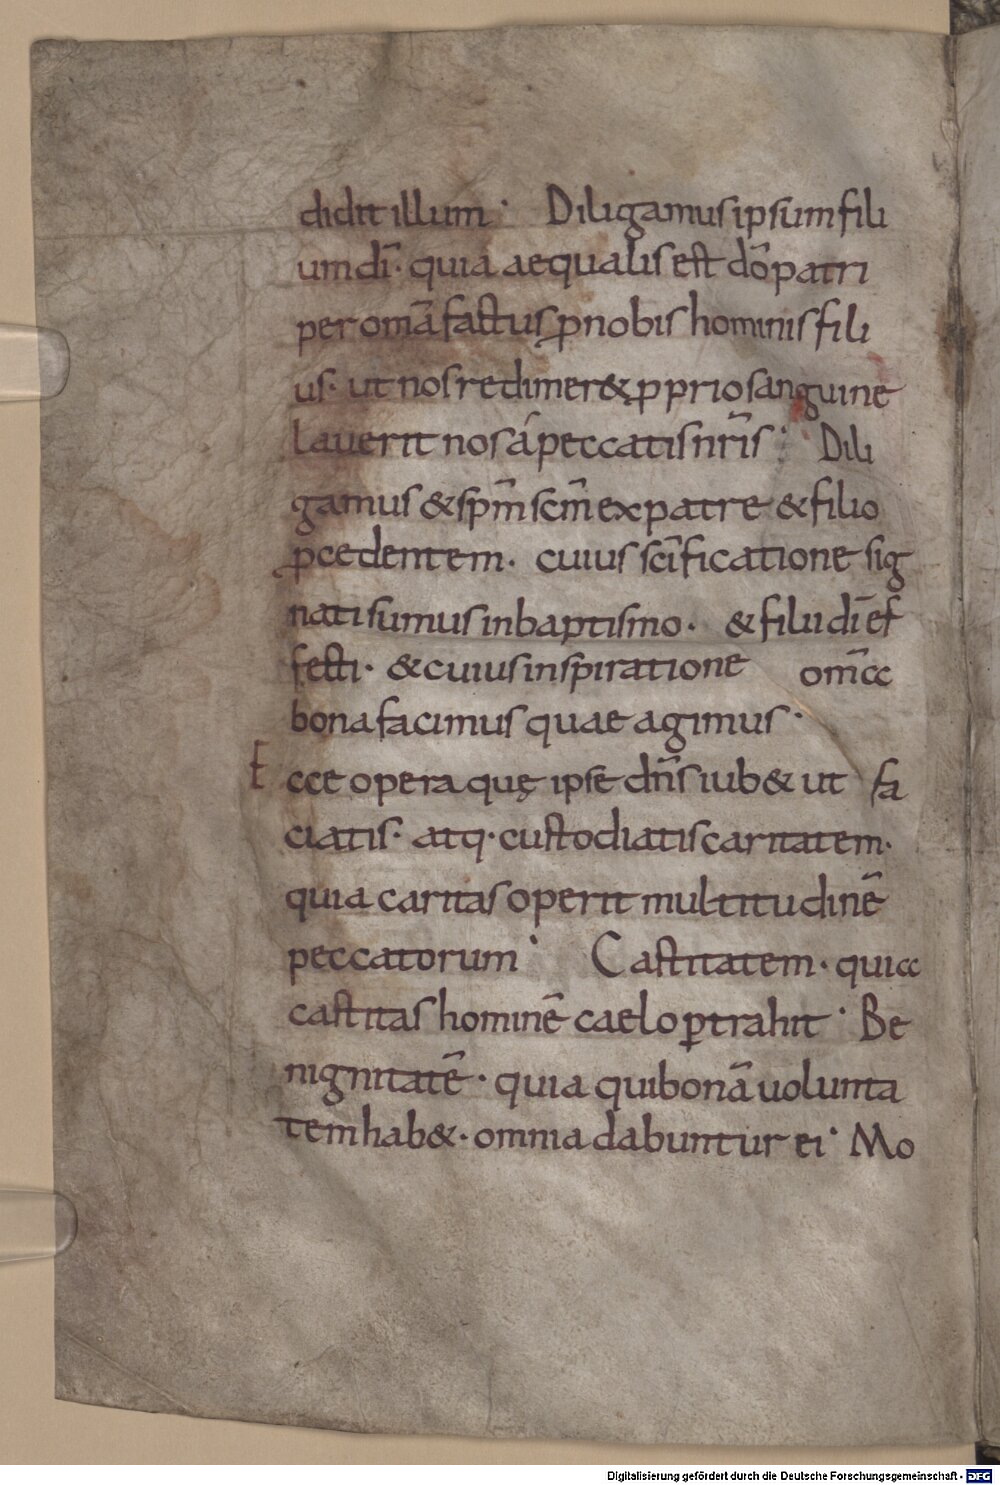 didit illum· Diligamus ipsum fili
um dī· quia aequalis est dō patri
per omā factus ꝓ nobis hominis fili
us· ut nos redimer& ꝓprio sanguine
lauerit nos á peccatis nr̄is· Dili
gamus & sp̄m sc̄m ex patre & filio
ꝓcedentem· cuius sc̄ificatione sig
nati sumus in baptismo· & filii dī ef
fecti· & cuius inspiratione om̄a
bona facimus quae agimus·
Ecce opera quę ipse dn̄s iub& ut fa
ciatis· atq· custodiatis caritatem·
quia caritas operit multitudinē
peccatorum· Castitatem· quia
castitas hominē caelo ꝑtrahit· Be
nignitatē· quia qui bonā uolunta
tem hab&· omnia dabuntur ei· Mo
Digitalisierung gefördert durch die Deutsche Forschungsgemeinschaft - DFG